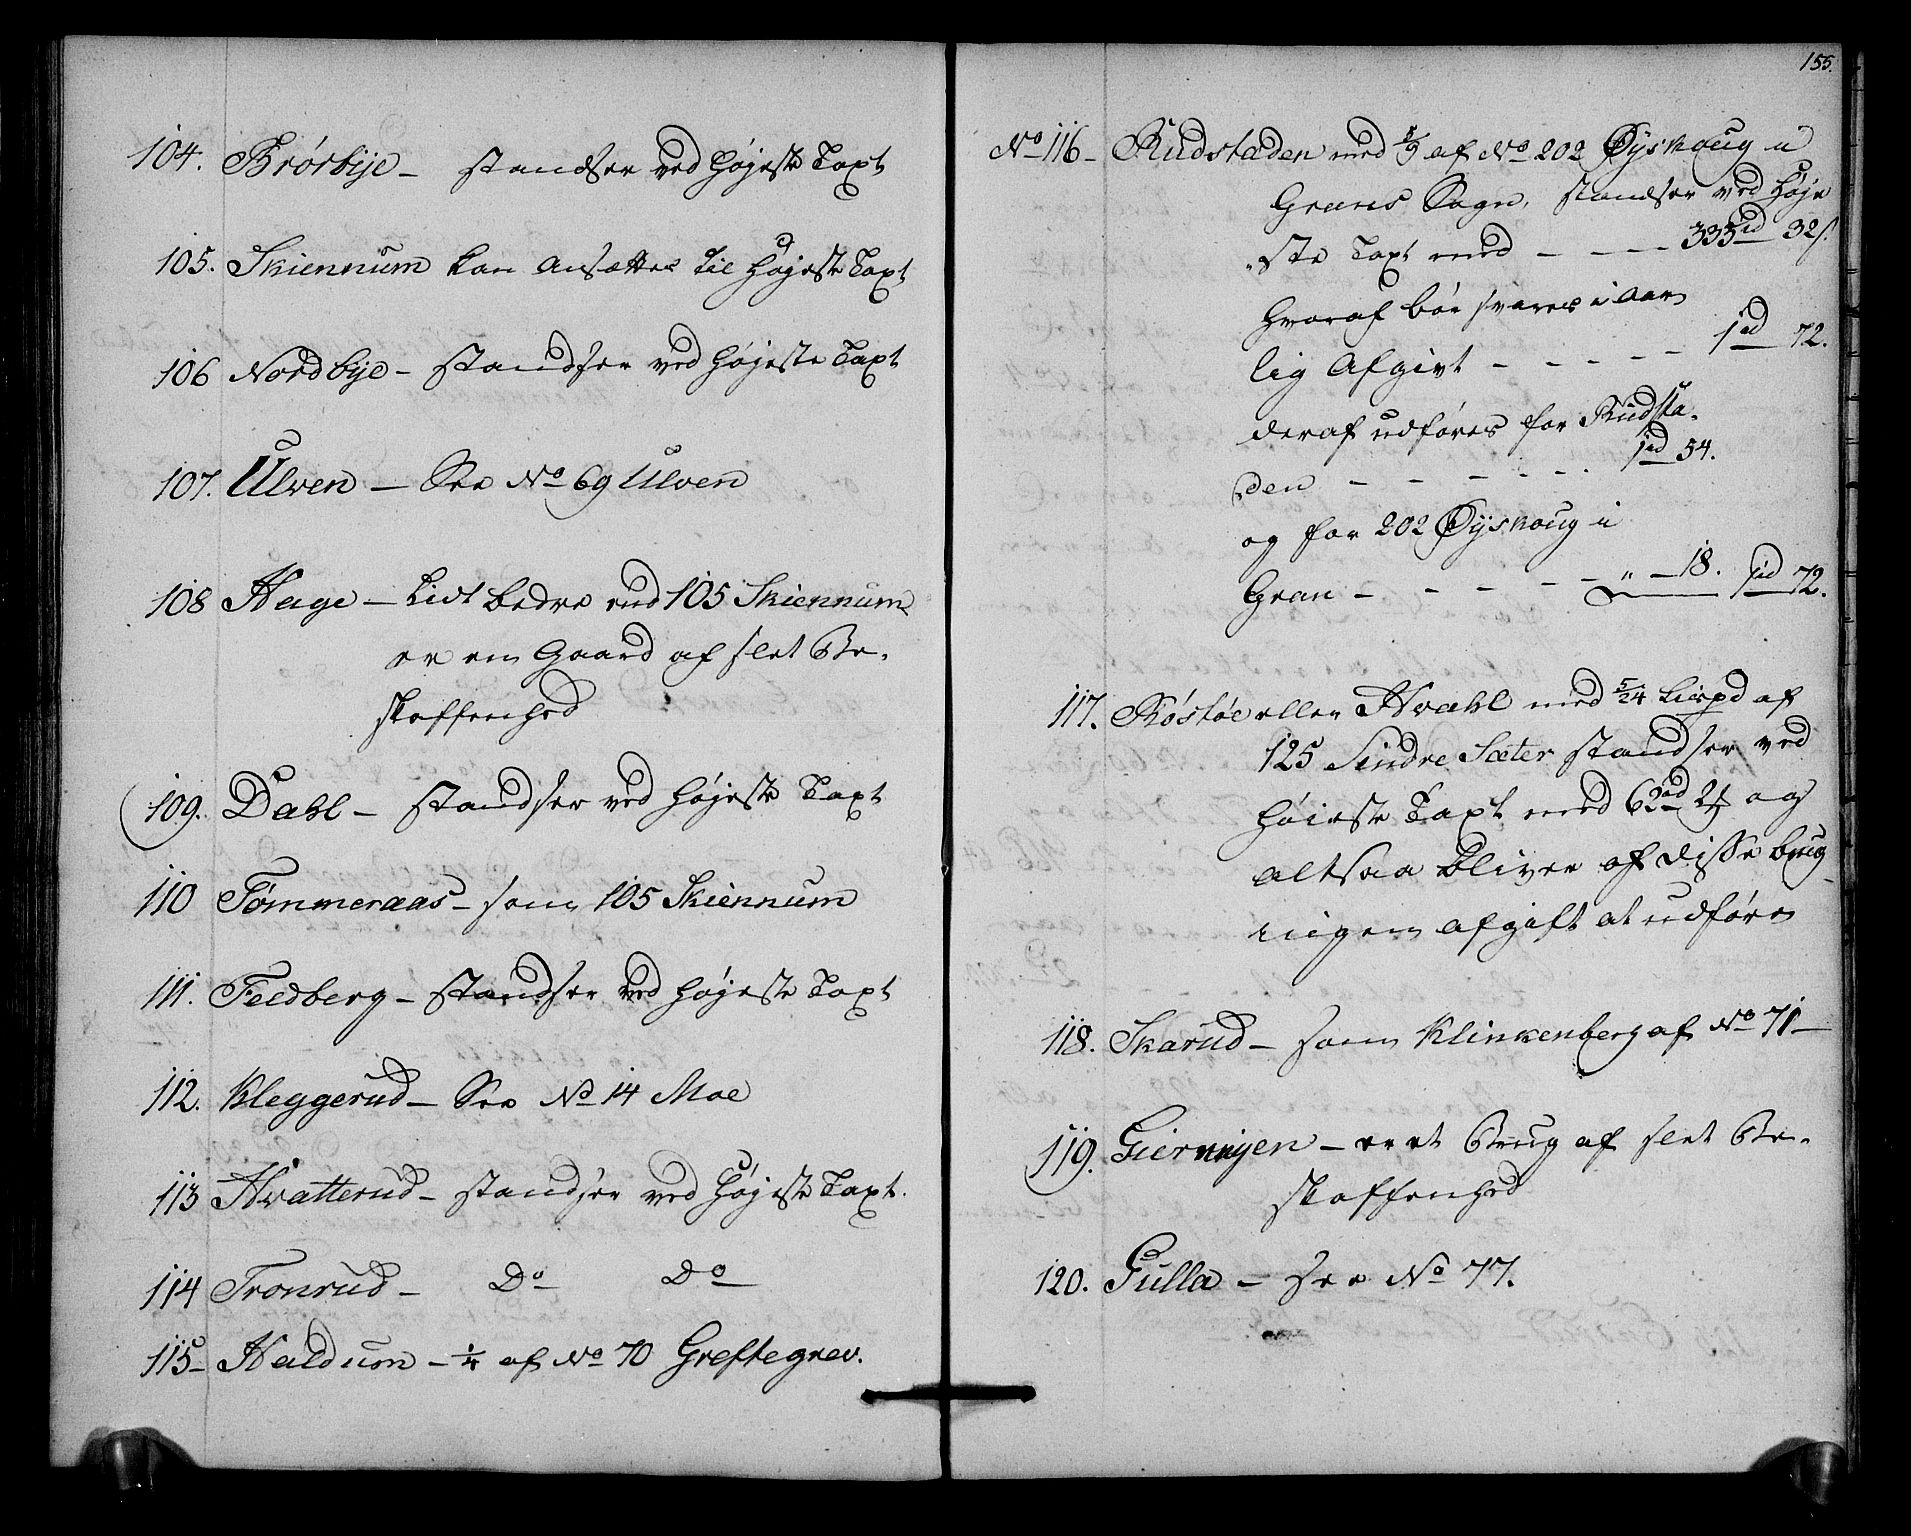 104. Brørbye – standser ved Højeste Taxt
105. Skiennum kan Ansættes til Højeste Taxt
106 Nordbye – standser ved Højeste Taxt
107. Ulven – See No 69 Ulven
108 Hage – Lidt bedre end 105 Skiennum
er en Gaard af slet Be-
skaffenhed
109. Dahl – standser ved Højeste Taxt
110 Tømmeraas – som 105 Skiennum
111. Feldberg – standser ved Højeste Taxt
112. Kleggerud – See No 14 Moe
113 Hvatterud – standser ved Højeste Taxt.
114 Tronrud – Do Do
115 – Haldum – 1/4 af No 70 Greftegrev.
155.
No 116 – Rudstaden med af No 202 Øyskoug i
Grans Sogn, standser ved Høje
ste Taxt med – – – 333rd 32s.
Hvoraf bør svares i Aar
lig Afgivt – – – – – 1rd 72.
deraf udføres for Rudsta-
den – – – – – 1rd 54.
og for 202 Øyskoug i
Gran – – – – – " – 18. 1rd 72.
117. Røstøe eller Hvahl med 5/24 Lispd af
125 Sindre Sæter standser ved
Høieste Taxt med 62rd 24 og
altsaa bliver af disse brug
ingen afgift at udføre
118. Skarud – som Klinkenberg af No 71 –
119. Giermyen – er et Brug af slet Be-
skaffenhed
120. Gulla – see No 77.